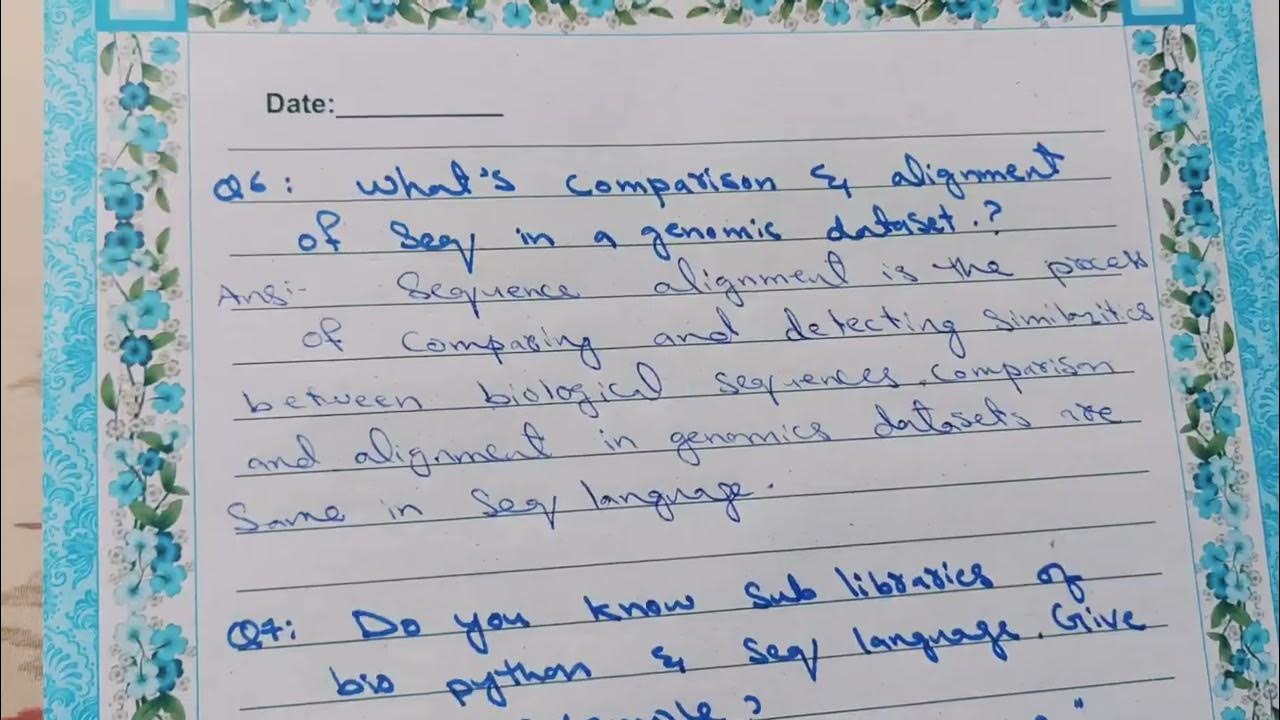 Date:
Q6: What's comparison & alignment
of Seq in a genomic dataset.?
Ans:- Sequence alignment is the process
of comparing and detecting similarities
between biological sequences. Comparison
and alignment in genomics datasets are
Same in Seq language.
Q7: Do you know sub libraries of
bio python & Seq language. Give